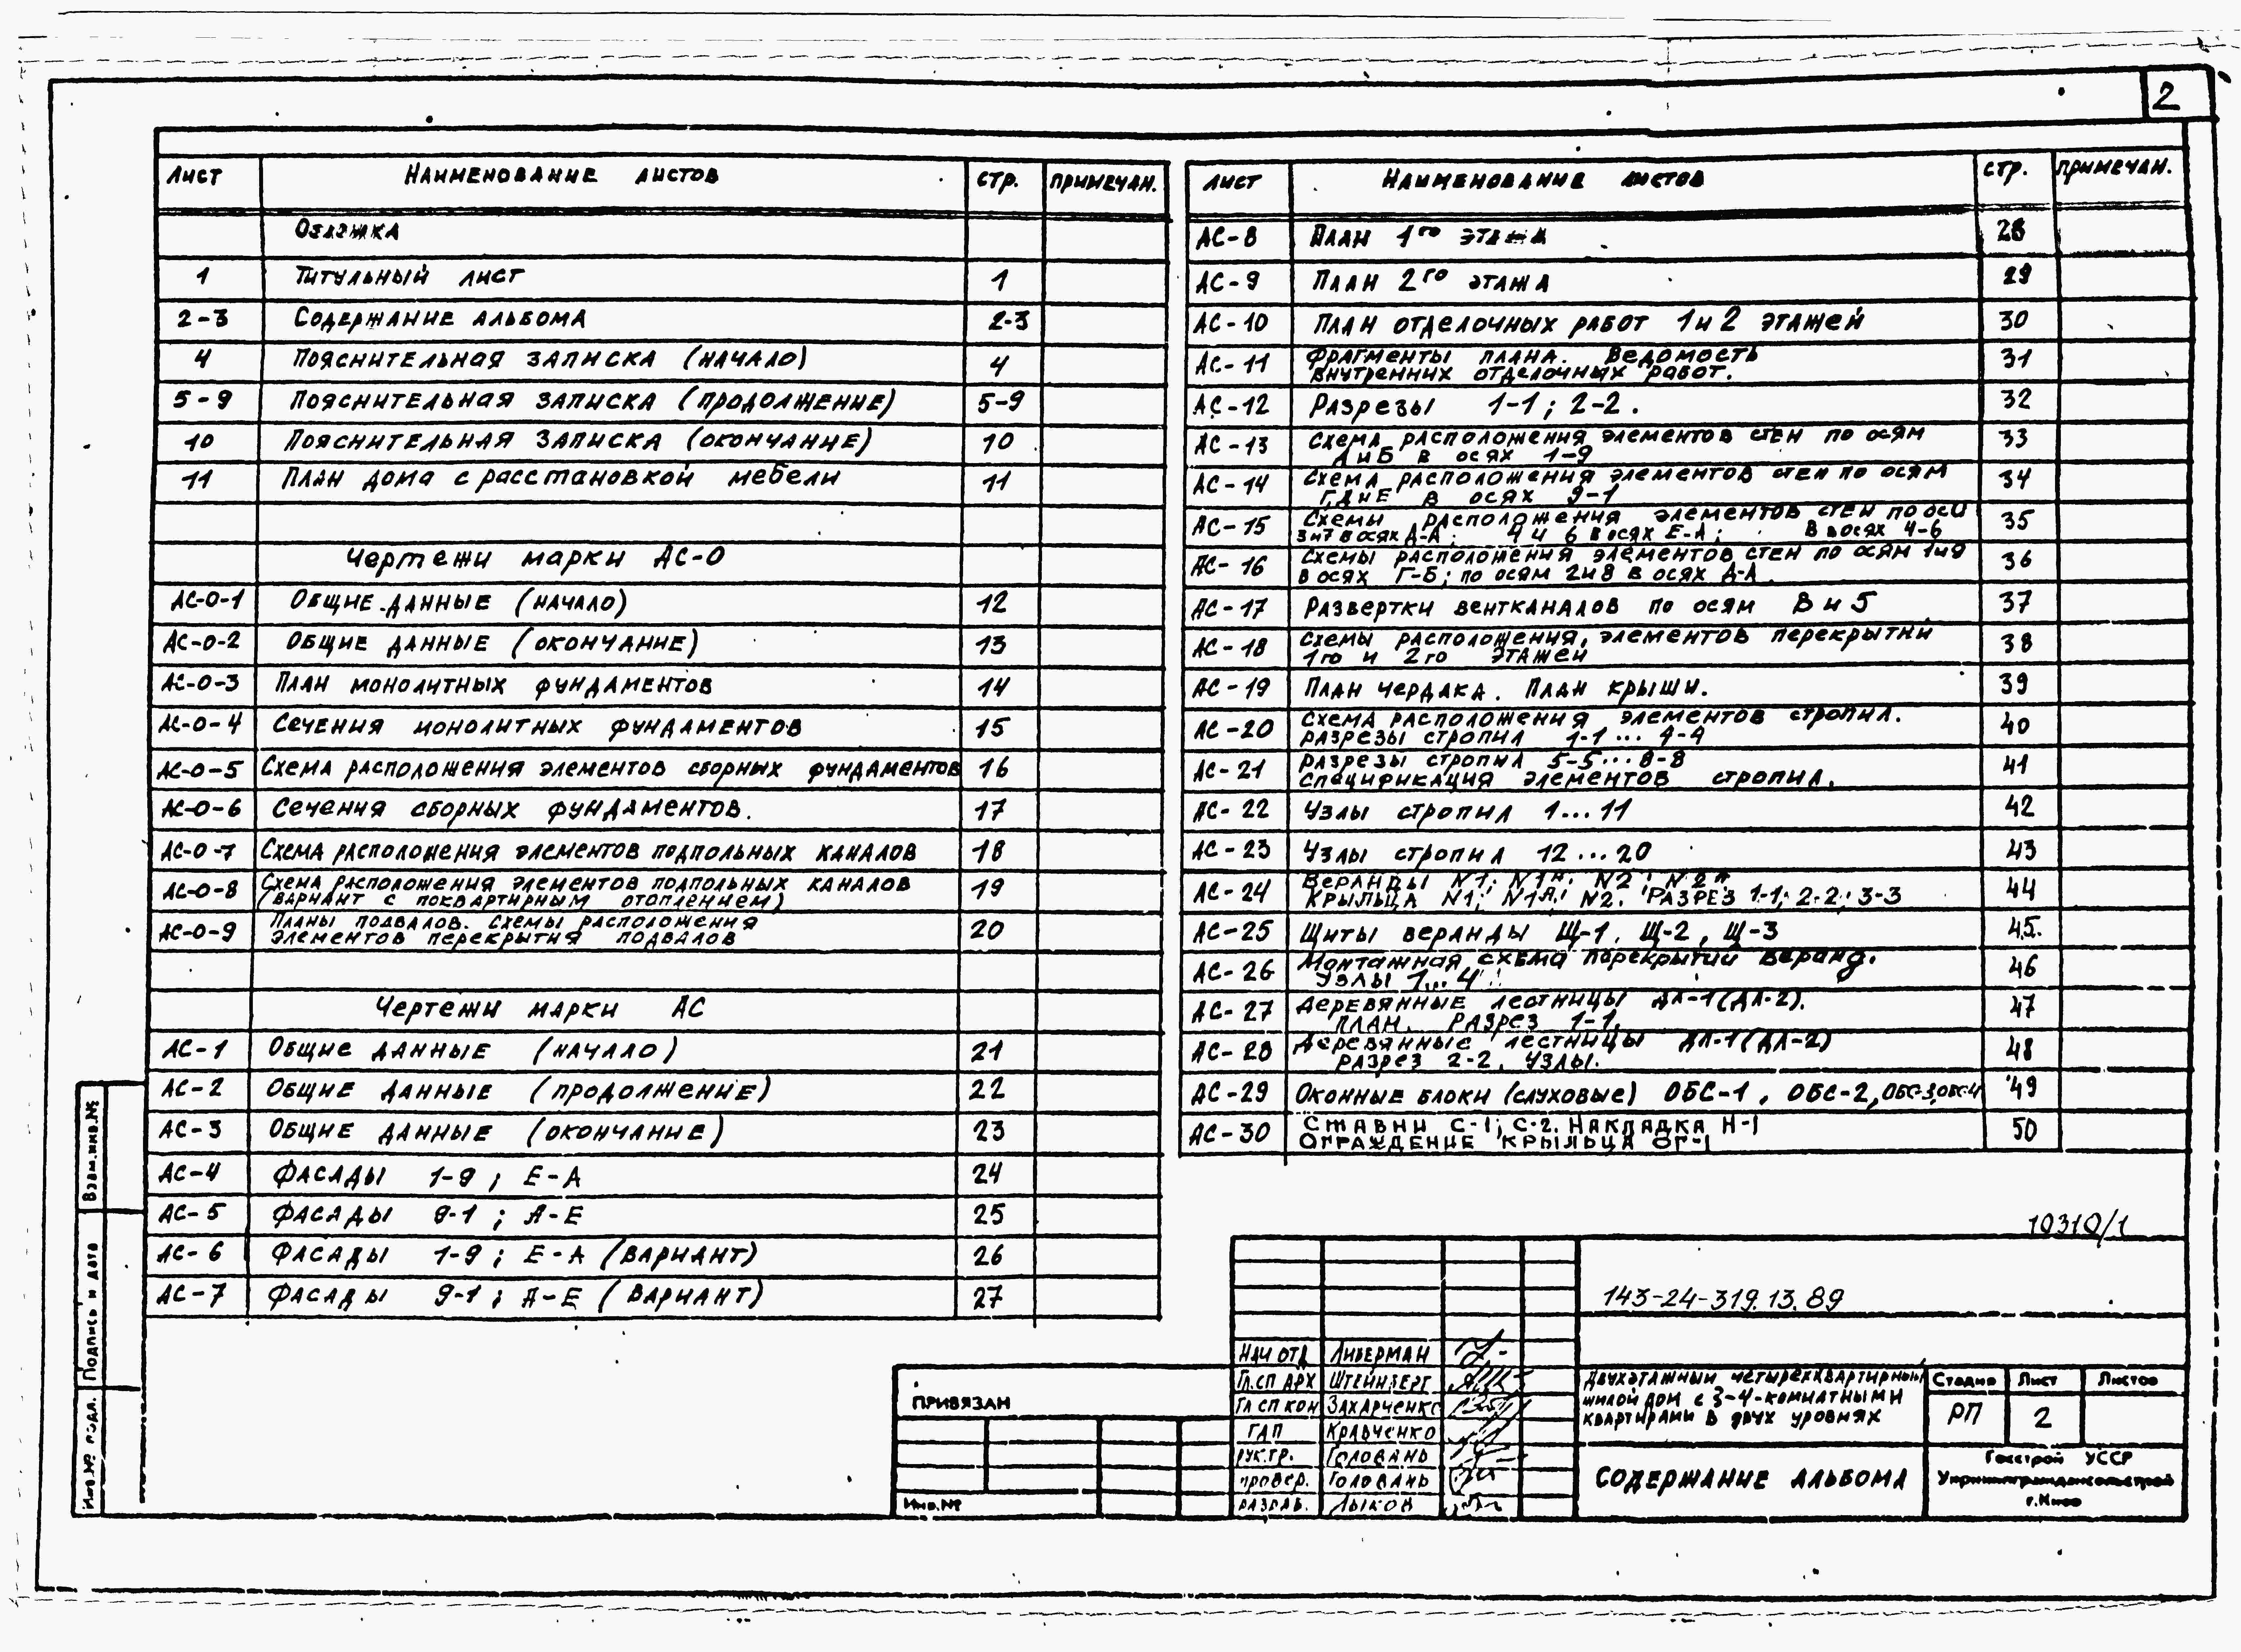 2
Лист Наименование листов стр. примечан.
Обложка
1 Титульный лист 1
2-3 Содержание альбома 2-3
4 Пояснительная записка (начало) 4
5-9 Пояснительная записка (продолжение) 5-9
10 Пояснительная записка (окончание) 10
11 План дома с расстановкой мебели 11
Чертежи марки АС-0
АС-0-1 Общие данные (начало) 12
АС-0-2 Общие данные (окончание) 13
АС-0-3 План монолитных фундаментов 14
АС-0-4 Сечения монолитных фундаментов 15
АС-0-5 Схема расположения элементов сборных фундаментов 16
АС-0-6 Сечения сборных фундаментов. 17
АС-0-7 Схема расположения элементов подпольных каналов 18
АС-0-8 Схема расположения элементов подпольных каналов 19
(вариант с поквартирным отоплением)
АС-0-9 Планы подвалов. Схемы расположения 20
элементов перекрытия подвалов
Чертежи марки АС
АС-1 Общие данные (начало) 21
АС-2 Общие данные (продолжение) 22
АС-3 Общие данные (окончание) 23
АС-4 Фасады 1-9; Е-А 24
АС-5 Фасады 9-1; А-Е 25
АС-6 Фасады 1-9; Е-А (вариант) 26
АС-7 Фасады 9-1; А-Е (вариант) 27
лист Наименование листов стр. примечан.
АС-8 План 1го этажа 28
АС-9 План 2го этажа 29
АС-10 План отделочных работ 1 и 2 этажей 30
АС-11 Фрагменты плана. Ведомость 31
внутренних отделочных работ.
АС-12 Разрезы 1-1; 2-2. 32
АС-13 Схема расположения элементов стен по осям 33
А и Б в осях 1-9
АС-14 Схема расположения элементов стен по осям 34
Г,Д и Е в осях 9-1
АС-15 Схемы расположения элементов стен по оси 35
3 и 7 в осях Д-А; 4 и 6 в осях Е-А; В в осях 4-6
АС-16 Схемы расположения элементов стен по осям 1 и 9 36
в осях Г-Б; по осям 2 и 8 в осях Д-А.
АС-17 Развертки вентканалов по осям В и 5 37
АС-18 Схемы расположения элементов перекрытий 38
1го и 2го этажей
АС-19 План чердака. План крыши. 39
АС-20 Схема расположения элементов стропил. 40
разрезы стропил 1-1...4-4
АС-21 Разрезы стропил 5-5...8-8 41
спецификация элементов стропил.
АС-22 Узлы стропил 1...11 42
АС-23 Узлы стропил 12...20 43
АС-24 Веранды N1; N1А; N2; N2А 44
Крыльца N1; N1А; N2. Разрез 1-1; 2-2; 3-3
АС-25 Щиты веранды Щ-1, Щ-2, Щ-3 45.
АС-26 Монтажная схема перекрытий веранд. 46
Узлы 1...4
АС-27 Деревянные лестницы ДЛ-1(ДЛ-2). 47
План. Разрез 1-1.
АС-28 Деревянные лестницы ДЛ-1(ДЛ-2) 48
Разрез 2-2. Узлы.
АС-29 Оконные блоки (слуховые) ОБС-1, ОБС-2, ОБС-3, ОБС-4 49
АС-30 Ставни С-1; С-2. Накладка Н-1 50
Ограждение крыльца ОГ-1
10310/1
143-24-319.13.89
Нач отд Либерман
Гл.сп арх Штейнберг
Гл сп кон Захарченко
ГАП Кравченко
рук.гр. Головань
провер. Головань
разраб. Лыков
Двухэтажный четырехквартирный
жилой дом с 3-4-комнатными
квартирами в двух уровнях
Стадия Лист Листов
РП 2
Содержание альбома
Госстрой УССР
Укрниипграждансельстрой
г.Киев
Привязан
Инв.№
Взам.инв.№
Подпись и дата
Инв.№ подл.